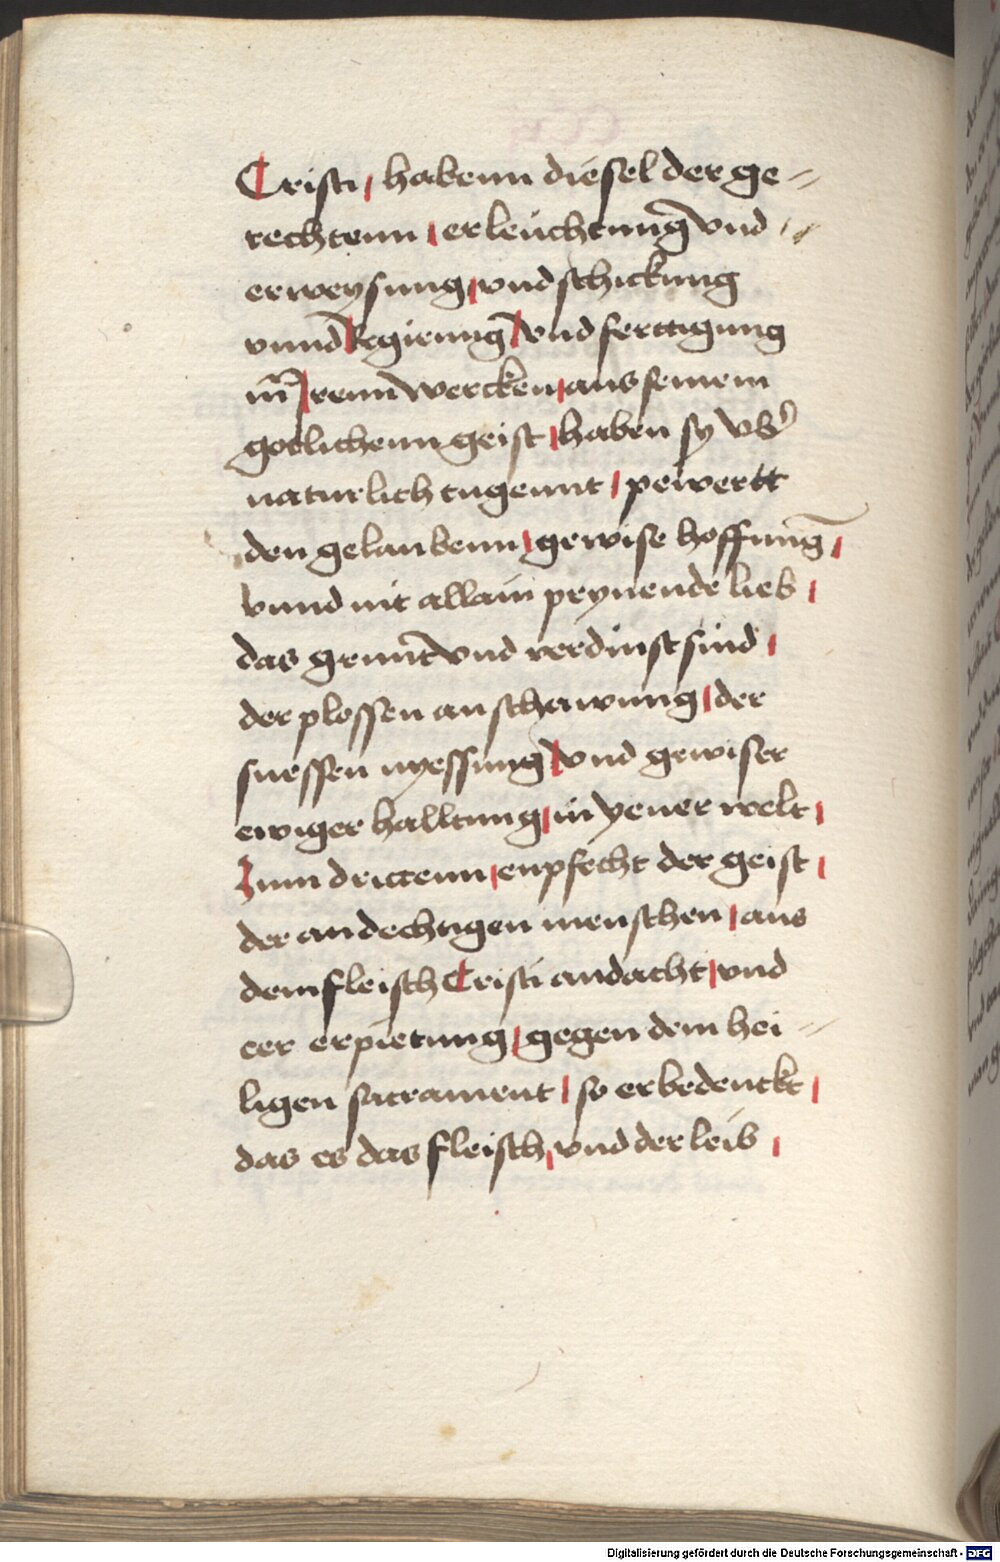 Cristi / habenn die sel der ge=
rechtenn / erleuchtung vnd //
erweysung / vnd schickung
vnnd Regierung / vnd ferttigung
Inn Irenn wercken / aus seinem
gotlichenn geist / haben sy vb̄
naturlich tugennt / pewertt
den gelaubenn / gewise hoffnung /
vnnd nit allain peynende lieb /
das grunt vnd verdinst sind /
der plossen anschawung / der
suessen nyessung / vnd gewiser
ewiger halltung / in yener welt /
Zum drittenn / enpfecht der geist /
der andechtigen menschen / aus
dem fleisch Cristi andacht / vnd
eer erpietung / gegen dem hei=
ligen sacrament / so er bedenckt /
das es das fleisch / vnd der leib /
Digitalisierung gefördert durch die Deutsche Forschungsgemeinschaft - DFG